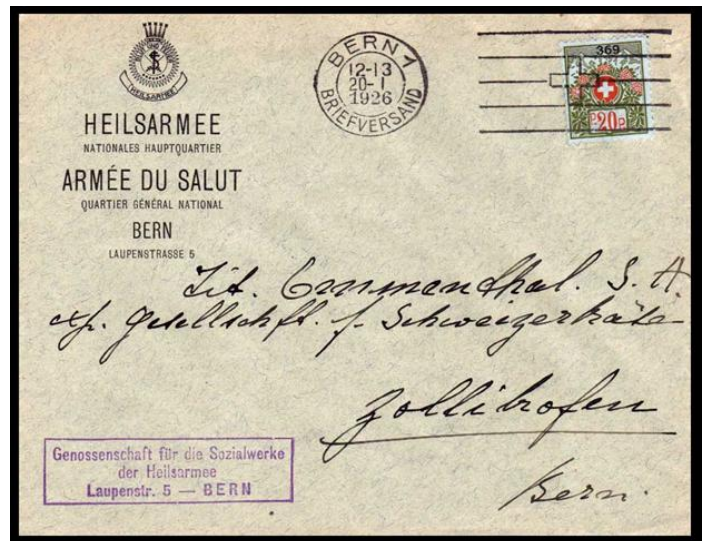 HEILSARMEE
HEILSARMEE
NATIONALES HAUPTQUARTIER
ARMÉE DU SALUT
QUARTIER GÉNÉRAL NATIONAL
BERN
LAUPENSTRASSE 5
BERN 1
12-13
20-I
1926
BRIEFVERSAND
369
20
Tit. Emmenthal. S. A.
exp. Gesellschft. f. Schweizerkäse
Zollikofen
Bern.
Genossenschaft für die Sozialwerke
der Heilsarmee
Laupenstr. 5 — BERN